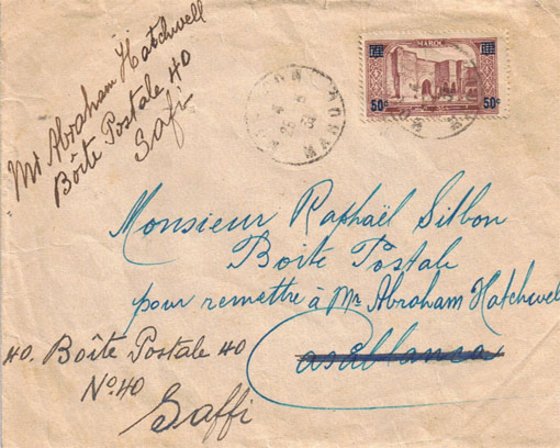 Mr Abraham Hatchwell
Boîte Postale 40
Safi
MAROC
50c 50c
Monsieur Raphaël Silbon
Boite Postale
pour remettre à Mr Abraham Hatchwell
Casablanca
40. Boîte Postale 40
No. 40
Saffi